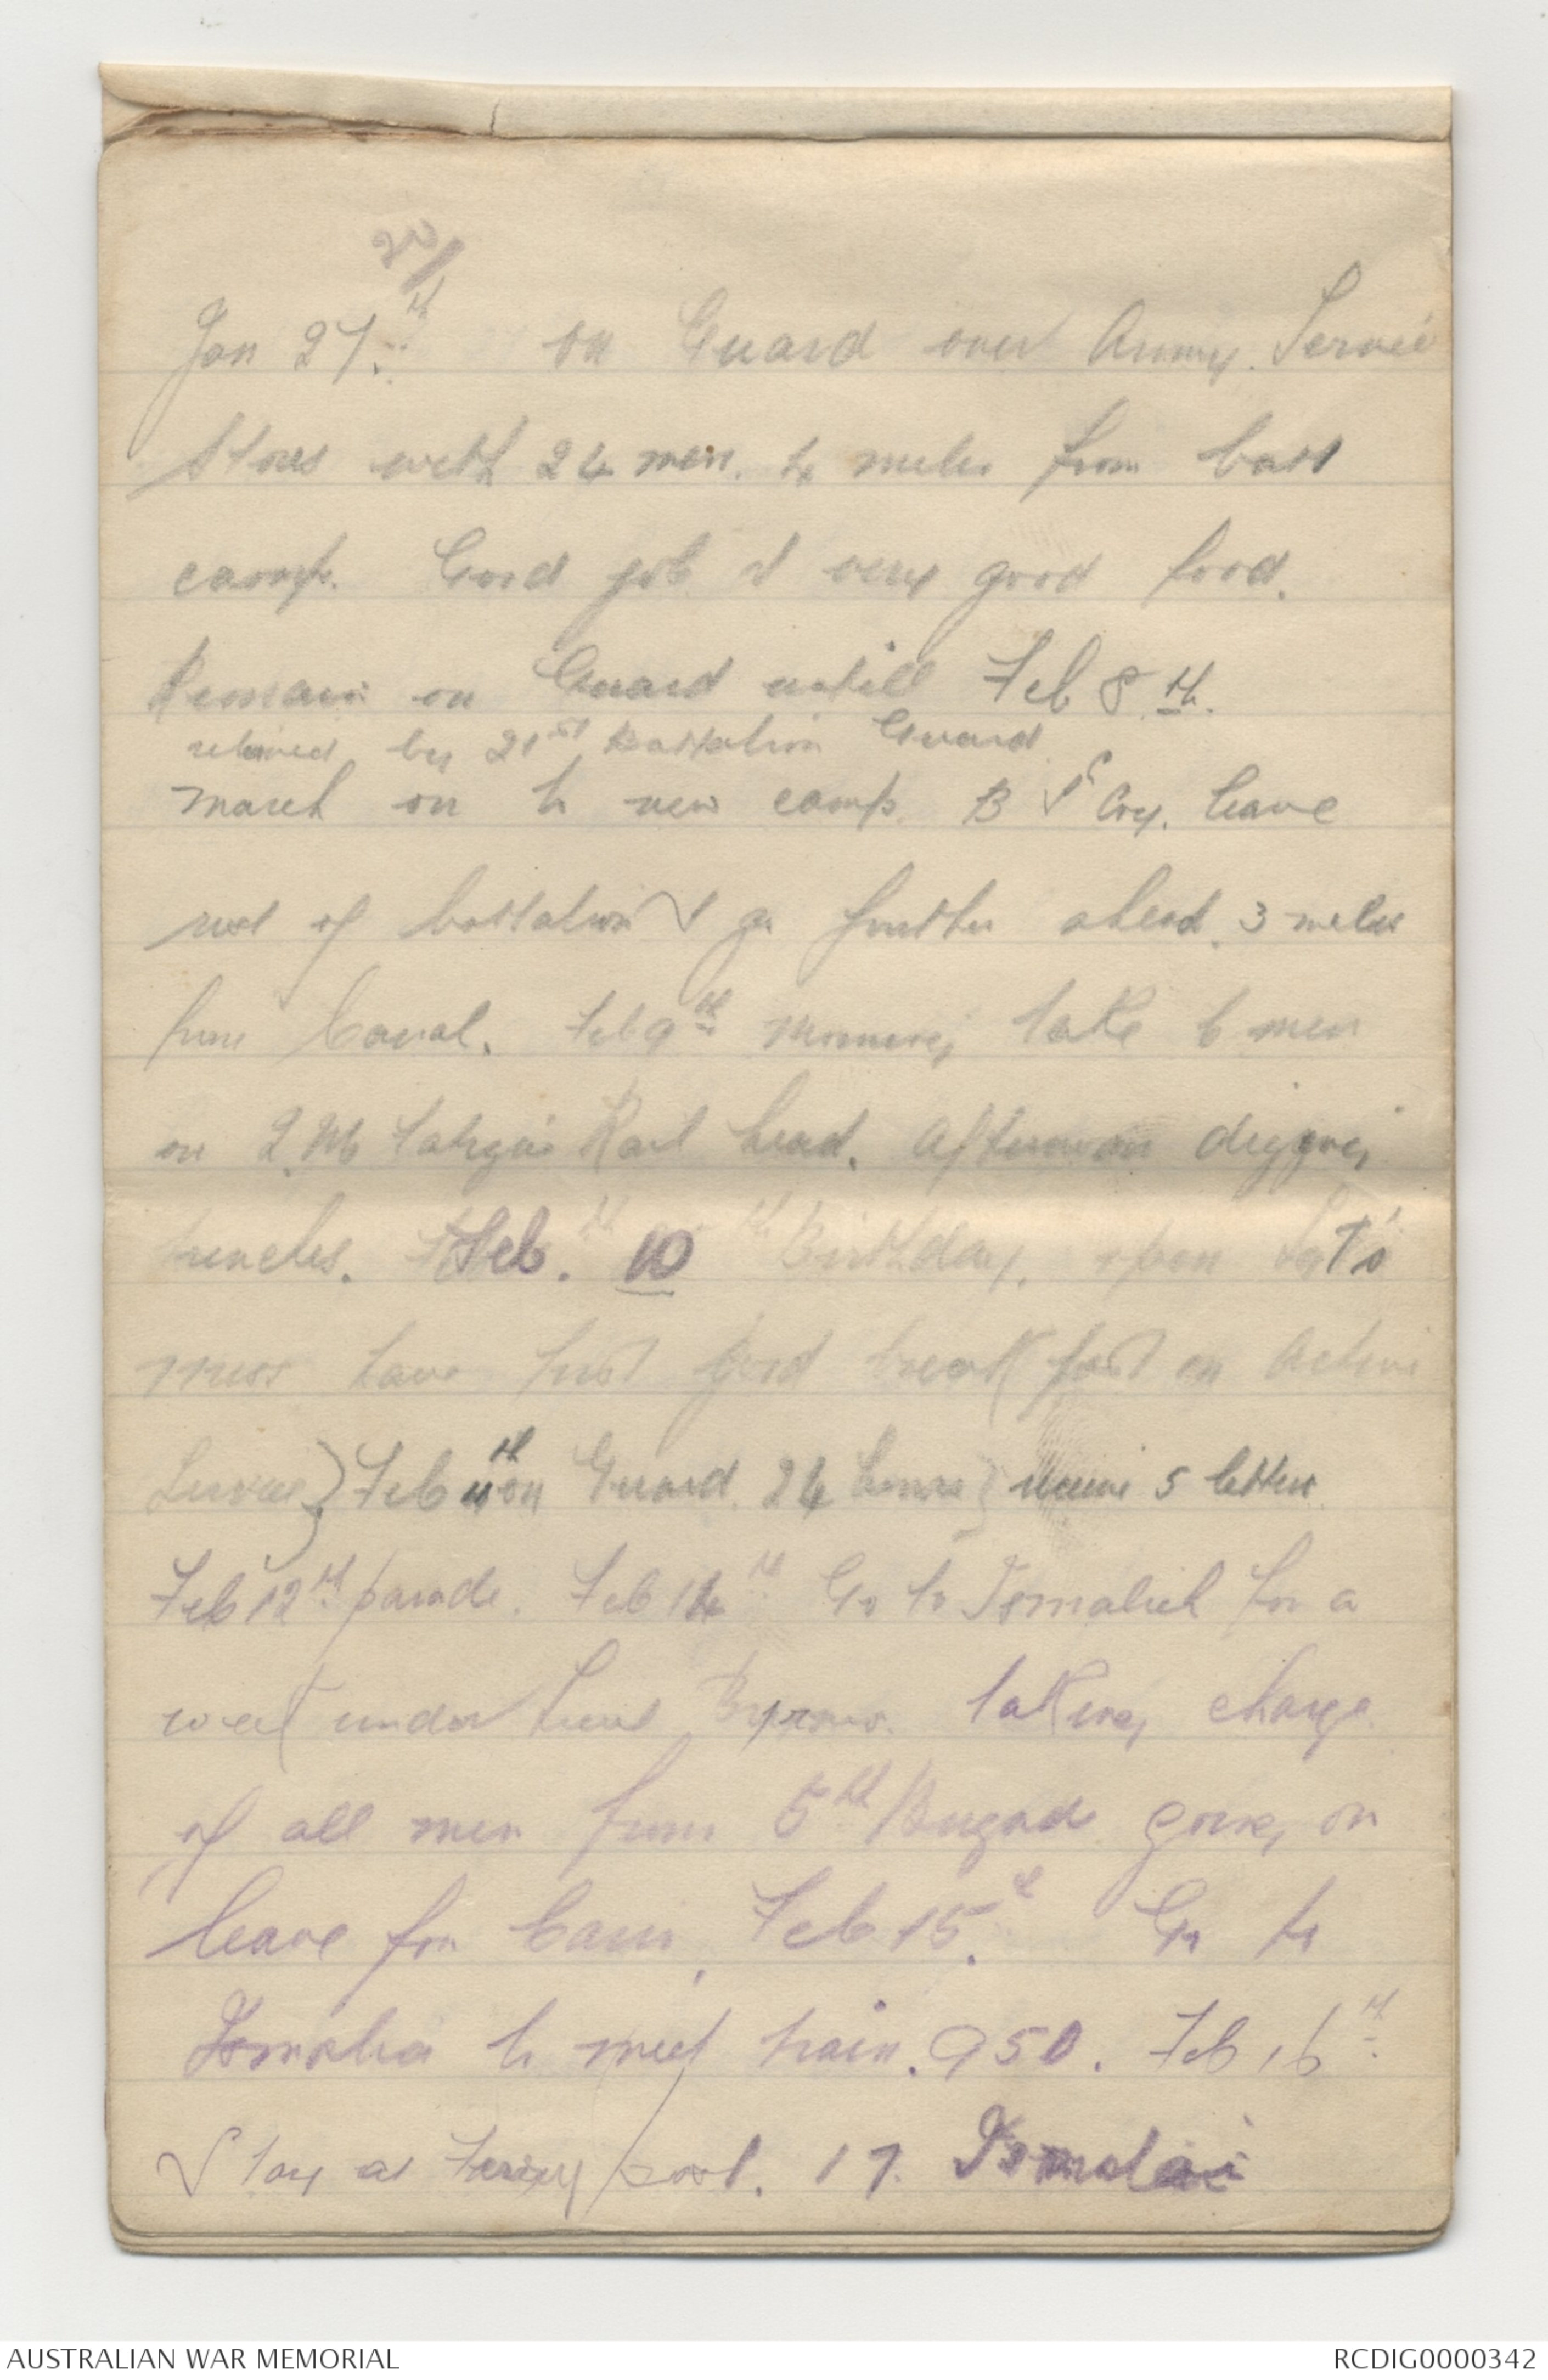 Jan 27th on Guard over Army Service
Stores with 24 men. 4 miles from batt
camp. Good job & very good food.
Remain on Guard untill Feb 8th.
relieved by 21st Battalion Guard
march on to new camp. B & C Coy. leave
rest of battalion & go further ahead. 3 miles
from Canal. Feb 9th morning take 6 men
on Q.M fatigue Rail head. Afternoon digging
trenches. Feb. 10th Birthday. open Sgt's
mess have first good breakfast on Active
Service} Feb 11th on Guard. 24 hours} receive 5 letters
Feb 12th parade. Feb 14th Go to Ismalieh for a
week under Lieut taking charge
of all men from 5th Brigade going on
leave for Cairo. Feb 15th Go to
Ismalia to meet train. 950. Feb 16th
Stay at Ferry post. 17. Ismalai
AUSTRALIAN WAR MEMORIAL
RCDIG0000342